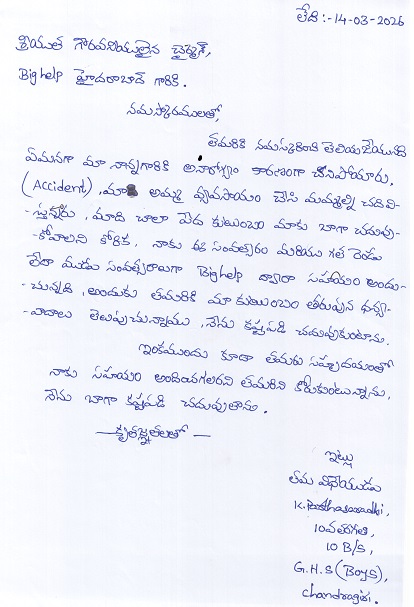 తేది:-14-03-2026
శ్రీయుత గౌరవనీయులైన చైర్మన్,
Bighelp హైదరాబాద్ గారికి.
నమస్కారములతో,
తమరికి నమస్కరించి తెలియజేయునది
ఏమనగా మా నాన్నగారికి అనారోగ్యం కారణంగా చనిపోయారు.
(Accident), మా అమ్మ వ్యవసాయం చేసి మమ్మల్ని చదివి-
-స్తున్నారు, మాది చాలా పేద కుటుంబం మాకు బాగా చదువు-
-కోవాలని కోరిక, నాకు ఈ సంవత్సరం మరియు గత రెండు
లేదా మూడు సంవత్సరాలుగా Bighelp ద్వారా సహాయం అందు-
-చున్నది, అందుకు తమరికి మా కుటుంబం తరుపున ధన్య-
-వాదాలు తెలుపుచున్నాము, నేను కష్టపడి చదువుకుంటాను.
ఇంకముందు కూడా తమరు సహృదయంతో
నాకు సహాయం అందించగలరని తమరిని కోరుకుంటున్నాను,
నేను బాగా కష్టపడి చదువుతాను.
—కృతజ్ఞతలతో—
ఇట్లు
తమ విధేయుడు
K. Parthasaradhi,
10వ తరగతి,
10 B/S,
G.H.S (Boys),
Chandragiri.